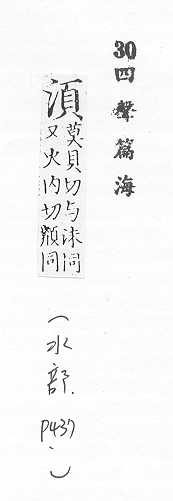 30四聲篇海
湏
莫貝切与沬同
又火内切同
(水部. P437)